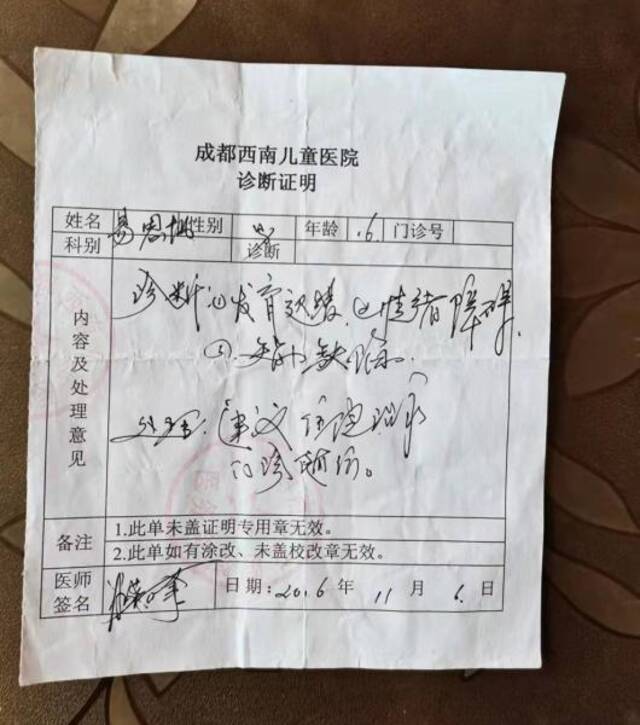 成都西南儿童医院
诊断证明
姓名 易思 性别 女 年龄 6 门诊号
科别 诊断
内容及处理意见
诊断①发育迟缓、②情绪障碍、
③ 缺陷
处理:建议住院
门诊
备注
1.此单未盖证明专用章无效。
2.此单如有涂改、未盖校改章无效。
医师签名
日期:2016年 11 月 6 日